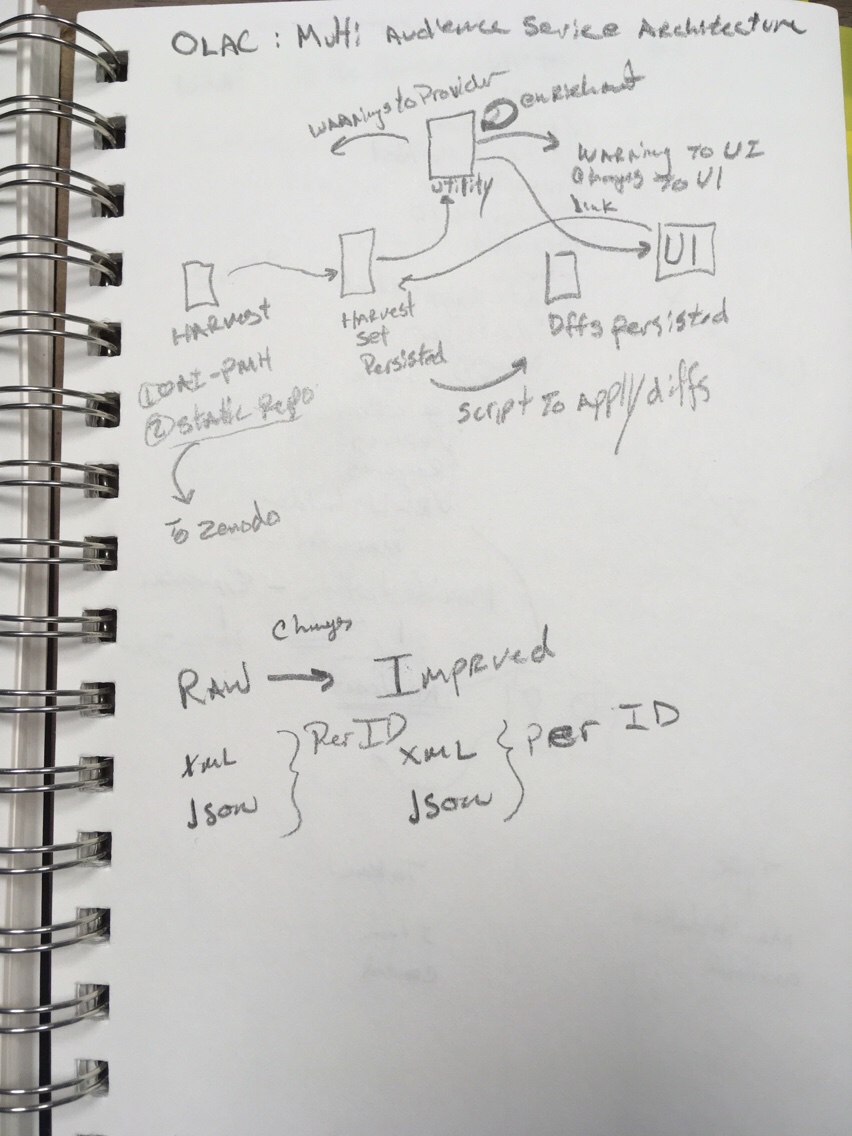 OLAC : Multi Audience Service Architecture
Warnings to Provider
enrichment
utility
Warning to UI
Changes to UI
link
UI
Harvest
Harvest
set
Persisted
Diffs Persisted
① OAI-PMH
② Static Repo
Script to Apply diffs
To Zenodo
Changes
RAW → Imprved
XML
Json
} Per ID
XML
Json
} Per ID